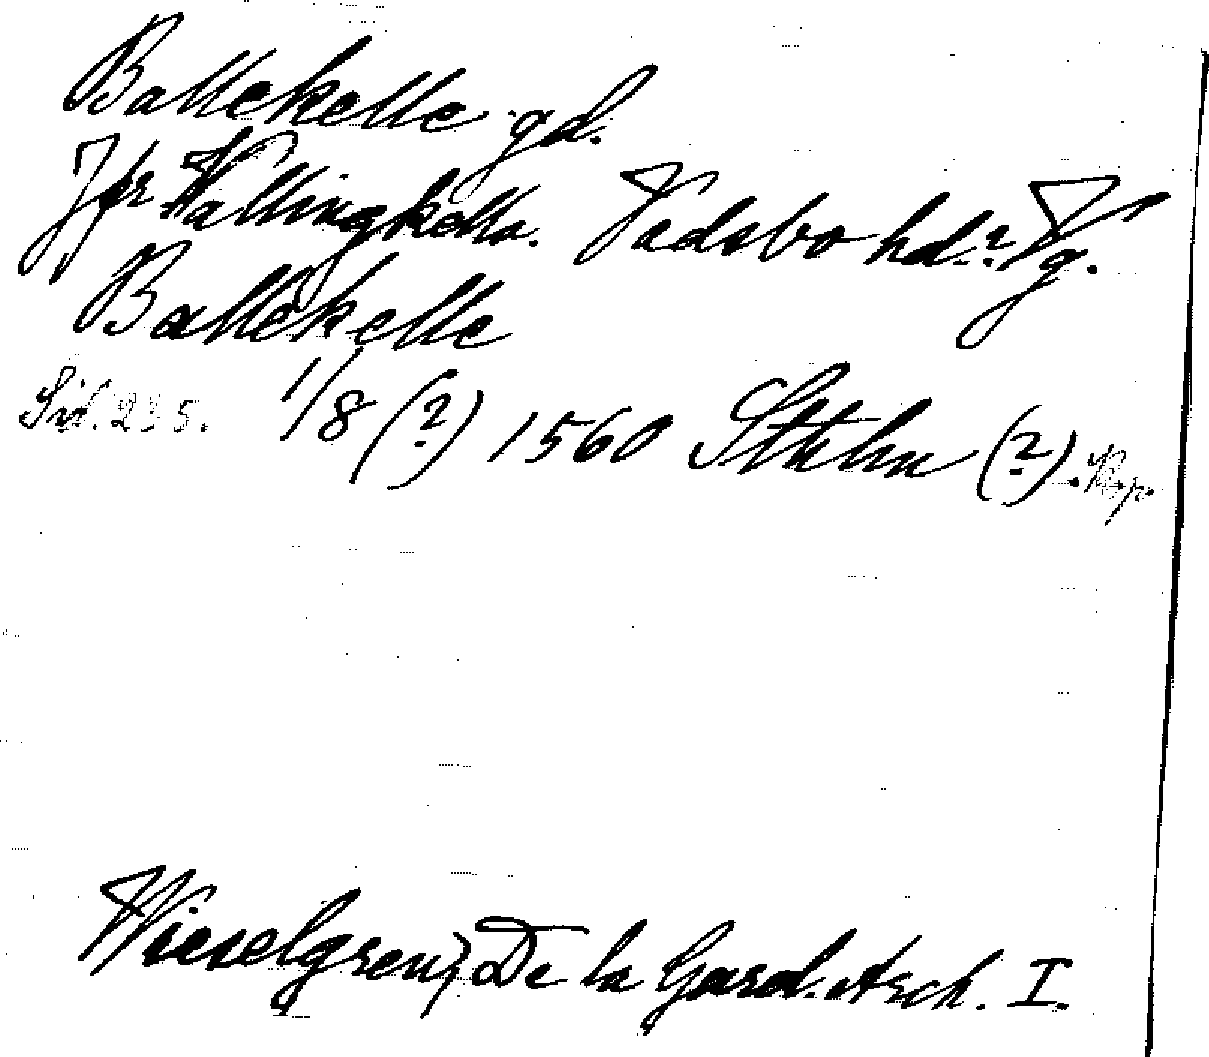 Ballekelle gd.
Jfr Vallingkella. Vadsbo hd.? Vg.
Ballekelle
Sid. 235. 1/8 (?) 1560 Sthlm (?). Kop.
Wieselgren, De la Gard. Arch. I.